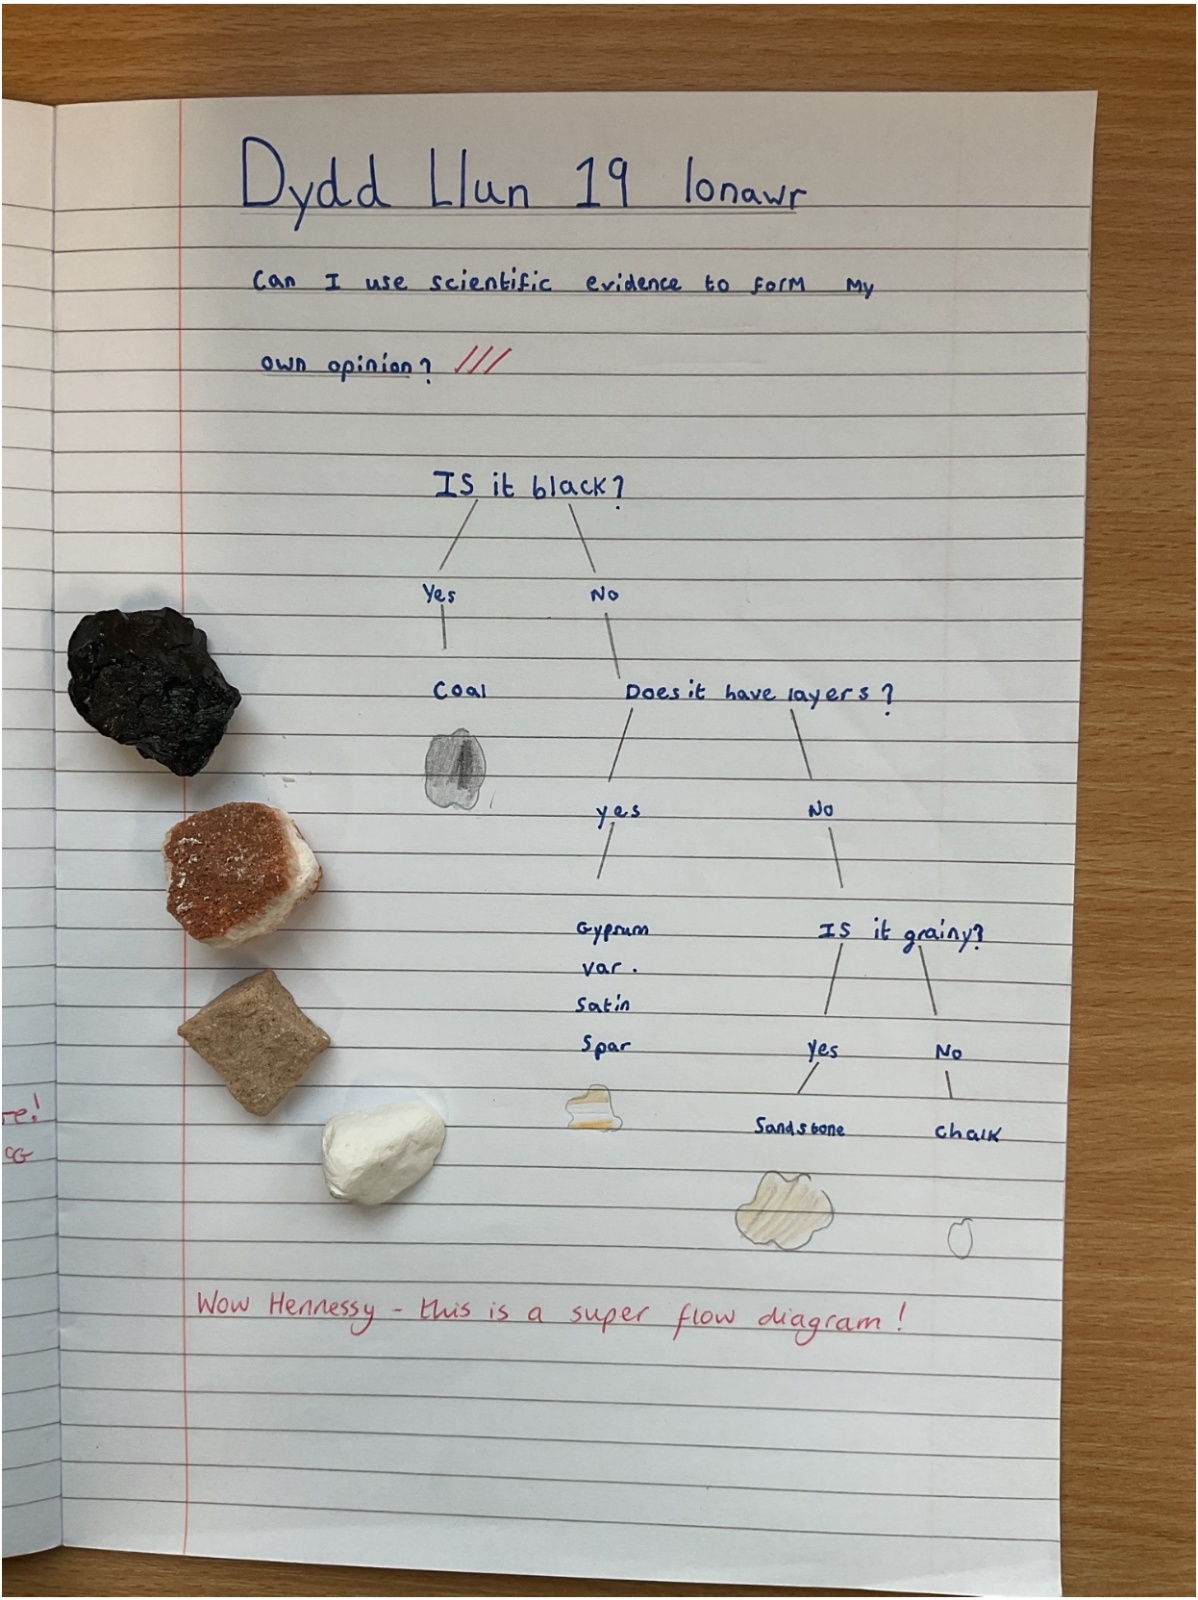 Dydd Llun 19 Ionawr
Can I use scientific evidence to form my
own opinion?
Is it black?
Yes No
Coal Does it have layers?
yes No
Gyprum Is it grainy?
var.
Satin
Spar Yes No
Sandstone Chalk
re!
Wow Hennessy - this is a super flow diagram!